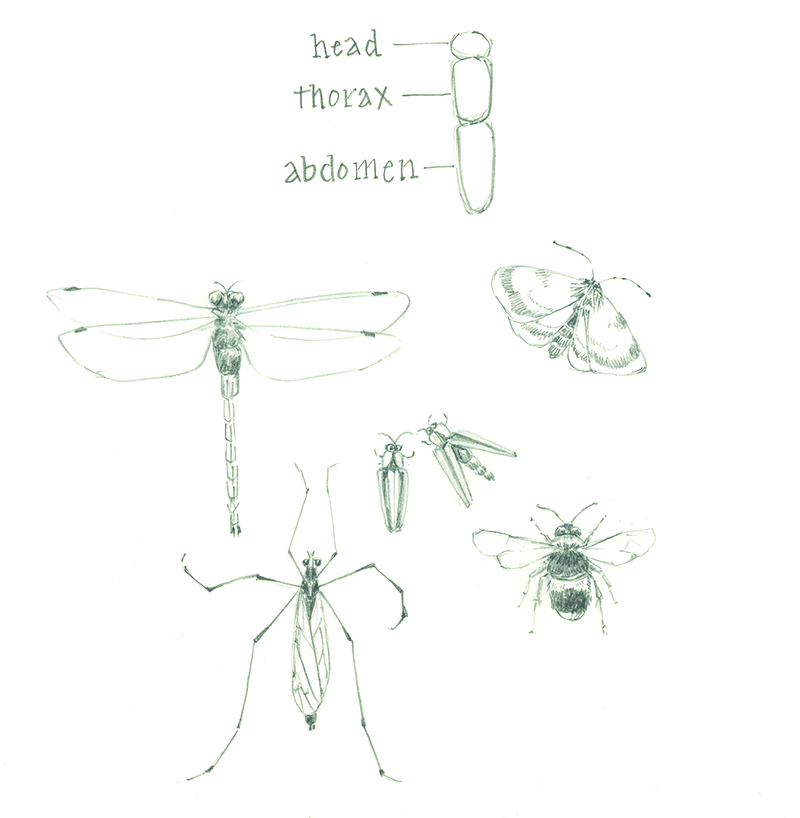 head
thorax
abdomen